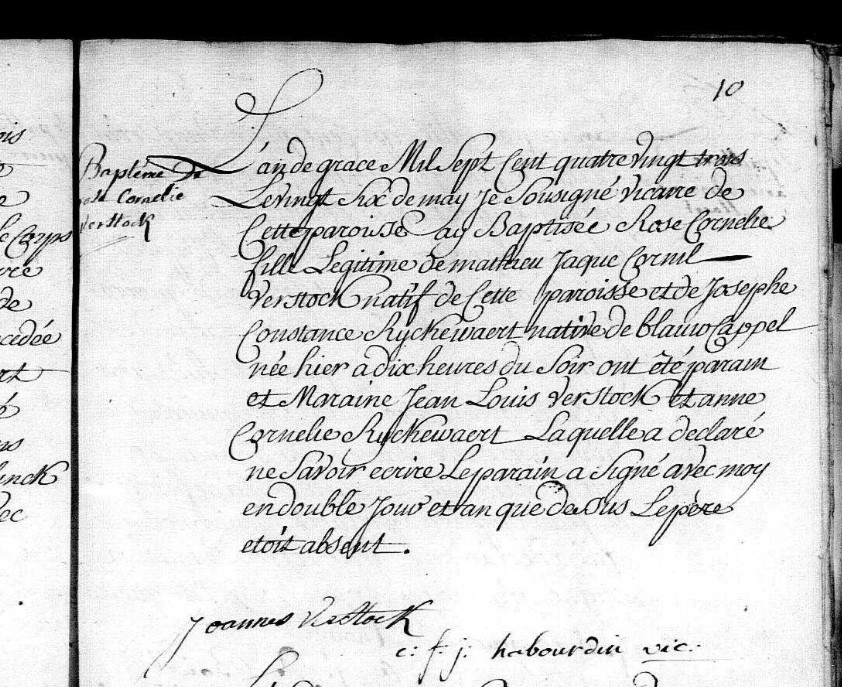 10
Baptême De
Cornelie
verstock
L'an de grace Mil Sept Cent quatre vingt trois
Le vingt Six de may Je Sousigné vicaire de
Cette paroisse ay Baptisée Rose Cornelie
fille Legitime de mathieu Jaque Cornil
verstock natif de Cette paroisse et de Josephe
Constance Ryckewaert native de blauw Cappel
née hier a dix heures du Soir ont été parain
et Maraine Jean Louis verstock et anne
Cornelie Ryckewaert Laquelle a declaré
ne Savoir ecrire Le parain a Signé avec moy
en double Jour et an que desSus Le pere
etoit absent.
Joannes verstock
c: f: j: habourdin vic:
Corps
de
cedée
rt
inck
ec